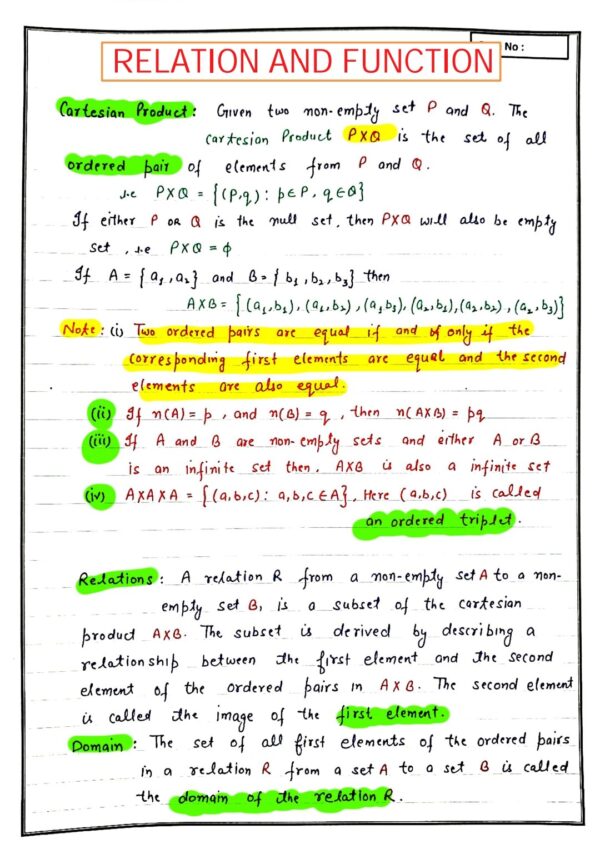 No :
RELATION AND FUNCTION
Cartesian Product : Given two non-empty set P and Q. The
cartesian Product PXQ is the set of all
ordered pair of elements from P and Q.
i.e PXQ = {(P,q) : p∈P, q∈Q}
If either P OR Q is the null set, then PXQ will also be empty
set , i.e PXQ = ϕ
If A = {a₁,a₂} and B = {b₁,b₂,b₃} then
AXB = {(a₁,b₁), (a₁,b₂), (a₁,b₃), (a₂,b₁), (a₂,b₂), (a₂,b₃)}
Note : (i) Two ordered pairs are equal if and of only if the
corresponding first elements are equal and the second
elements are also equal.
(ii) If n(A) = p , and n(B) = q , then n(AXB) = pq
(iii) If A and B are non-empty sets and either A or B
is an infinite set then, AXB is also a infinite set
(iv) AXAXA = {(a,b,c) : a,b,c ∈A}. Here (a,b,c) is called
an ordered triplet.
Relations : A relation R from a non-empty set A to a non-
empty set B, is a subset of the cartesian
product AXB. The subset is derived by describing a
relationship between the first element and the second
element of the ordered pairs in AXB. The second element
is called the image of the first element.
Domain : The set of all first elements of the ordered pairs
in a relation R from a set A to a set B is called
the domain of the relation R.